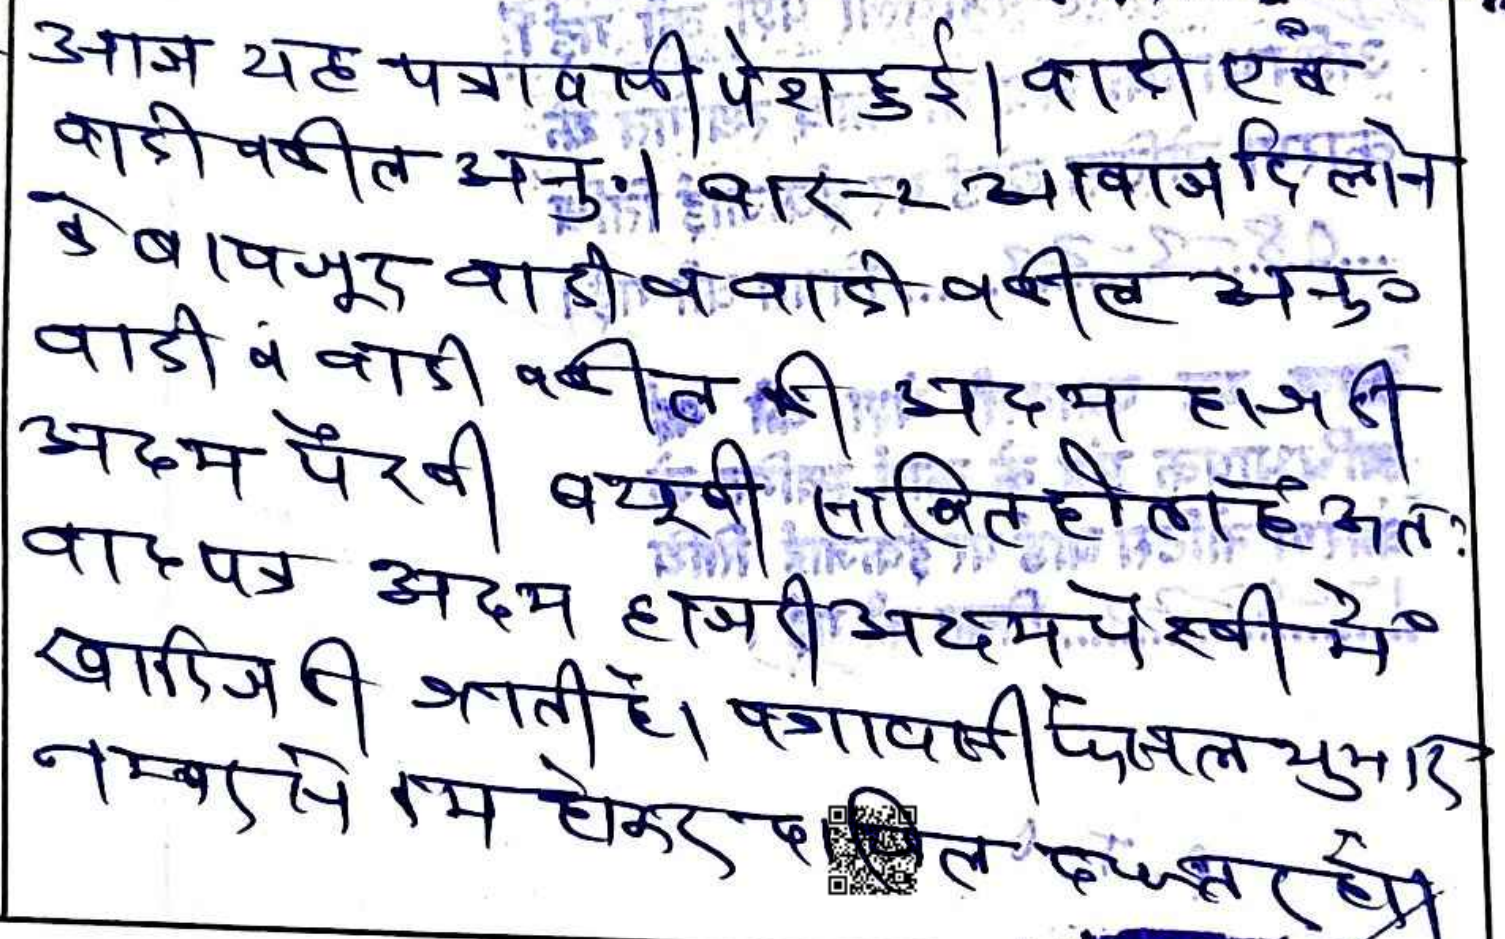 आज यह पत्रावली पेश हुई। वादी एवं
वादी वकील अनु०। बार-२ आवाज दिलाने
के बावजूद वादी व वादी वकील अनु०
वादी व वादी वकील की अदम हाजरी
अदम पैरवी बखूबी साबित होता है अतः
वाद पत्र अदम हाजरी अदम पैरवी में
खारिज की जाती है। पत्रावली फैसल शुमार
नम्बर से कम होकर दाखिल दफ्तर हो।